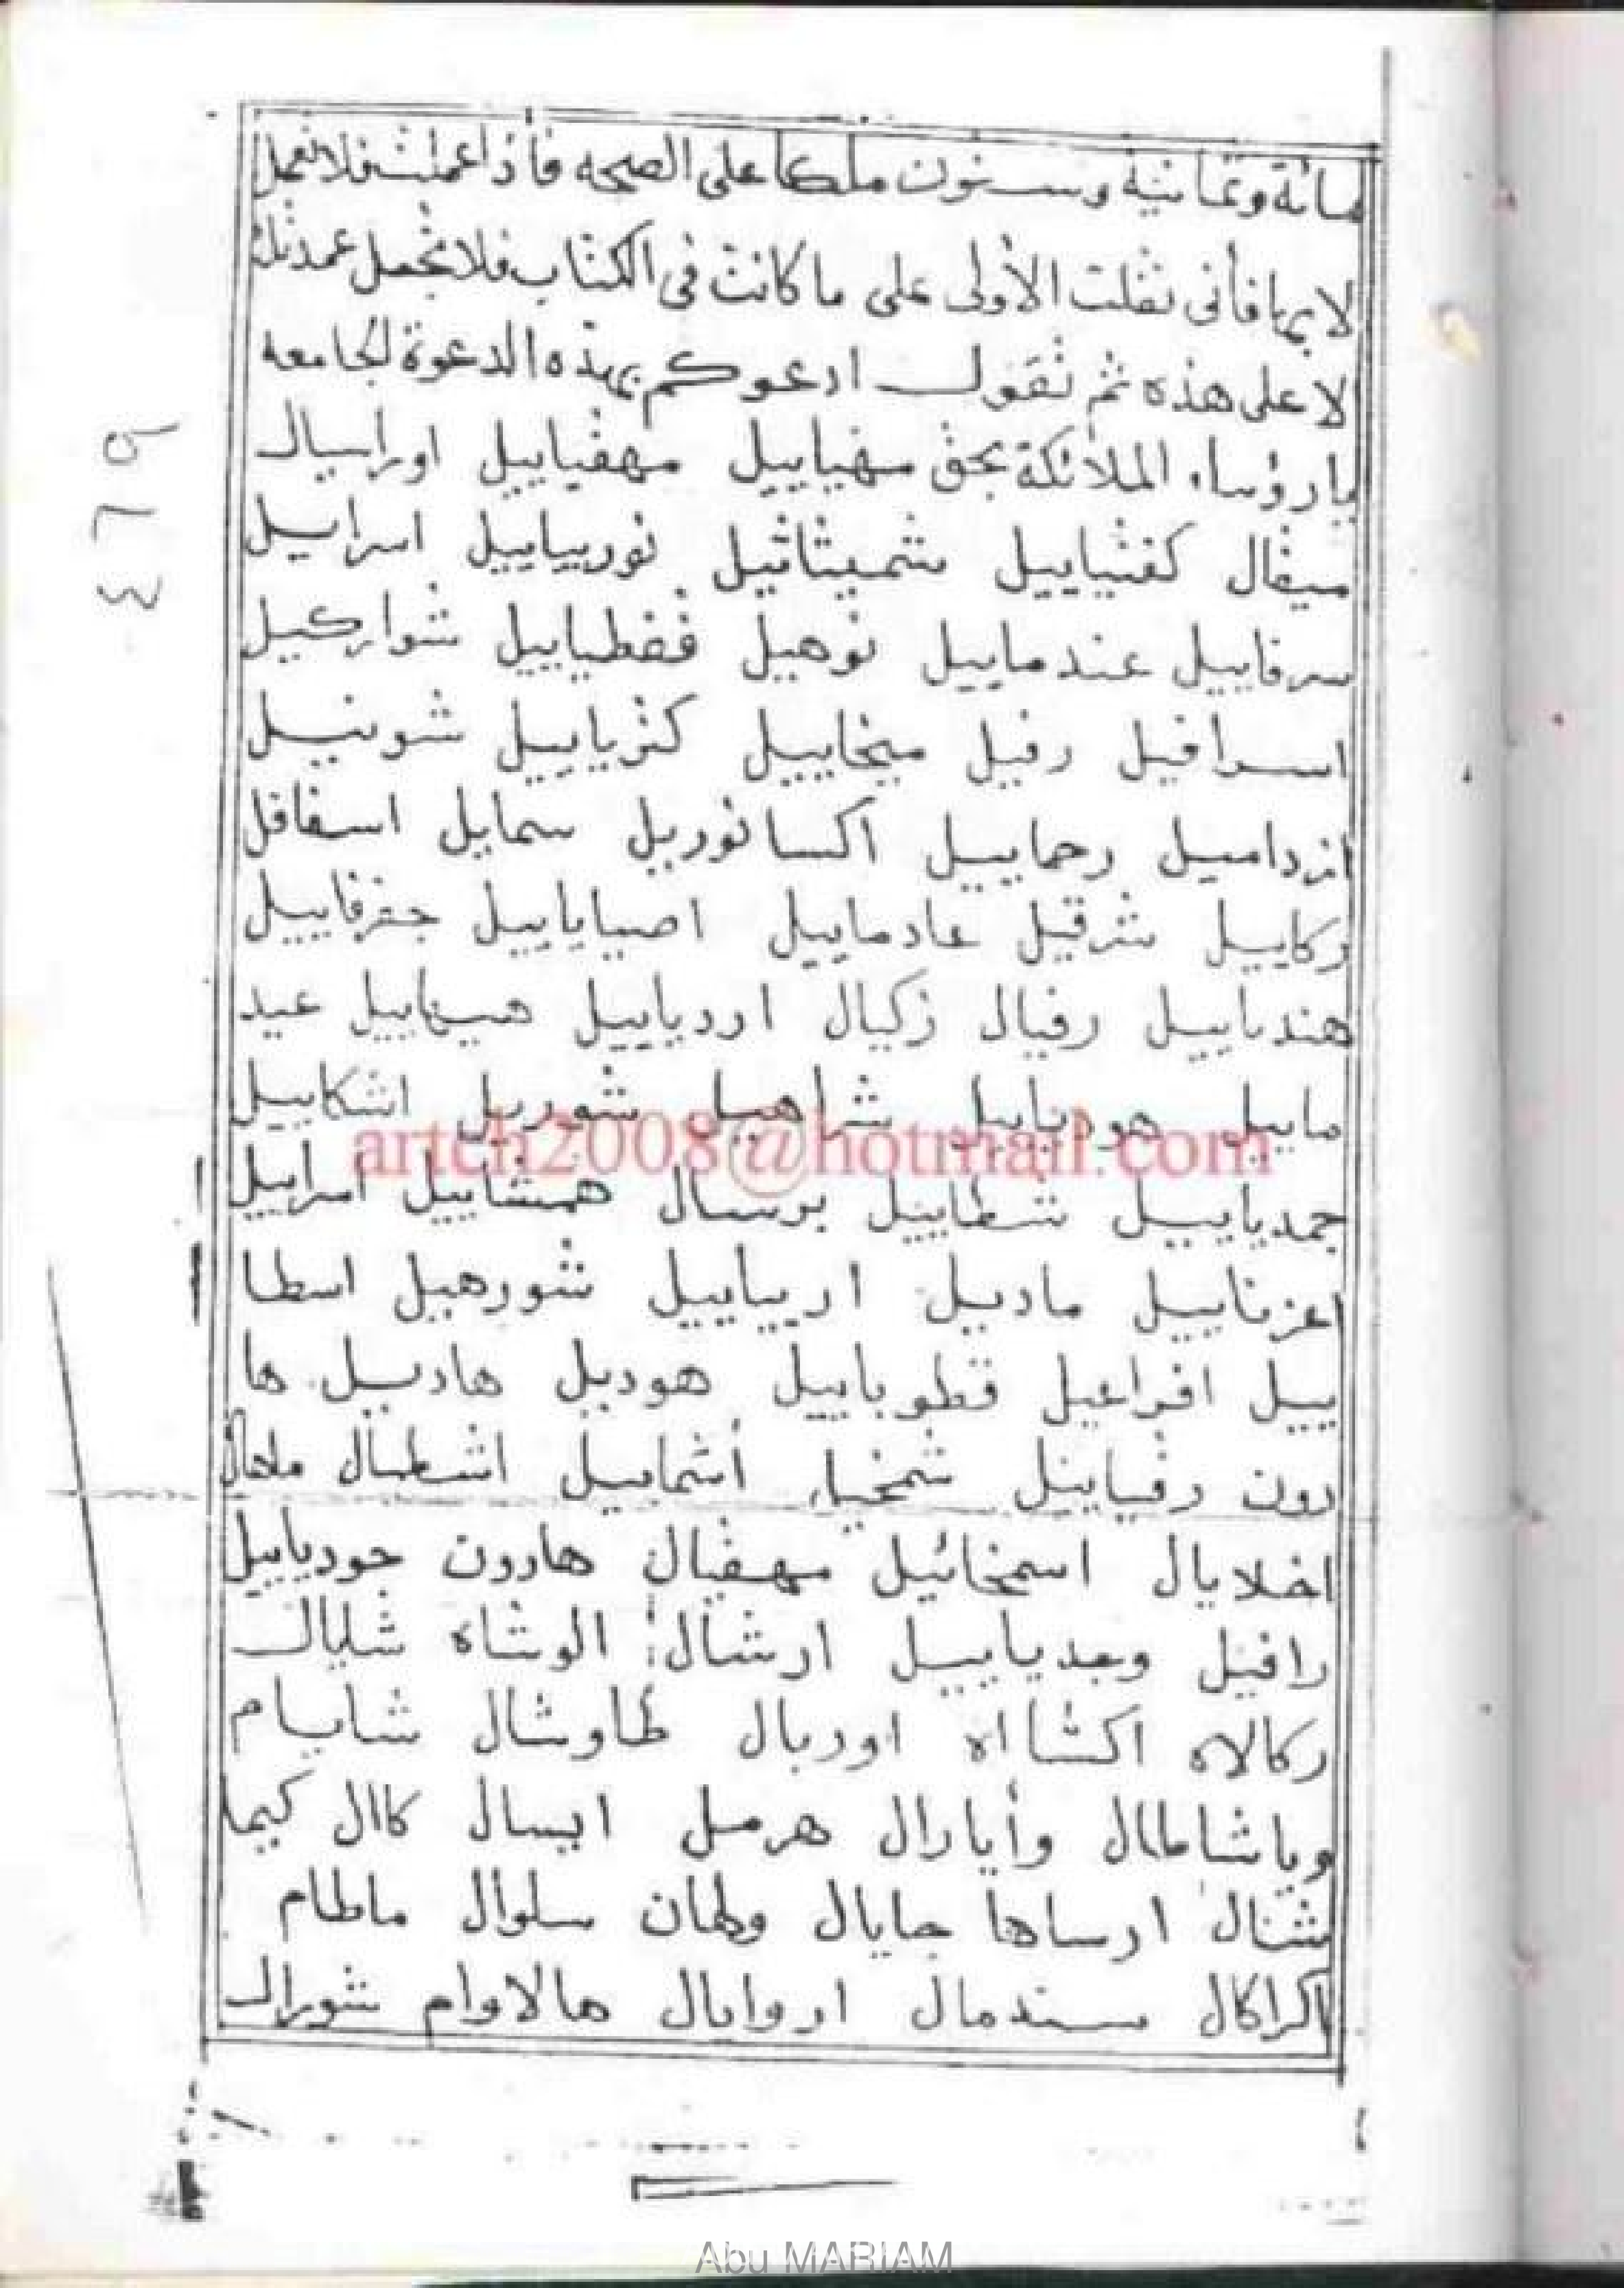 مائة وثمانية وستون ملكا على الصحه فأذا عملت فلا تعمل
لا بها فأنى نقلت الأولى على ما كانت فى الكتاب فلا تجعل عمدتك
لا على هذه ثم تقول ادعوكم بهذه الدعوة الجامعه
يا رؤساء الملائكة بحق سهيابيل مهفيابيل اوراسيال
ميفال كفثيابيل شميثاثيل نوريبابيل اسرابيل
سرفاييل عندماييل نوهيل قفطيابيل شواركيل
اسرافيل رفيل ميخاييل كثرياييل شوتيل
ازداميل رحماييل اكسانوريل سمايل اسفاقل
ركاييل شرقيل عادماييل اصباياييل جفرفاييل
هندياييل رفيال زكيال اردياييل هيهاييل عيد
ماييل هودياييل شراهيل شوريل اشكاييل
artch2008@hotmail.com
حمدياييل شطاييل برسال همشاييل اسراييل
اعزتاييل ماديل ارياييل شورهيل اسطا
ييل افراعيل قطوباييل هوديل هاديل ها
رون رفياييل شمخيل أشماييل اشطيال ملهال
اخلايال اسمخائيل مهفيال هارون جودياييل
رافيل وجدياييل ارشال الوشاه شليال
ركالاه اكشااه اوريال طاوشال شايام
ويا شاطال وأيارال هرمل ايسال كاال كيما
شنال ارساها جايال ولهان سلوال ماطام
اكراكال سندمال اروايال هالاوام شورال
٤٦٥
Abu MARIAM